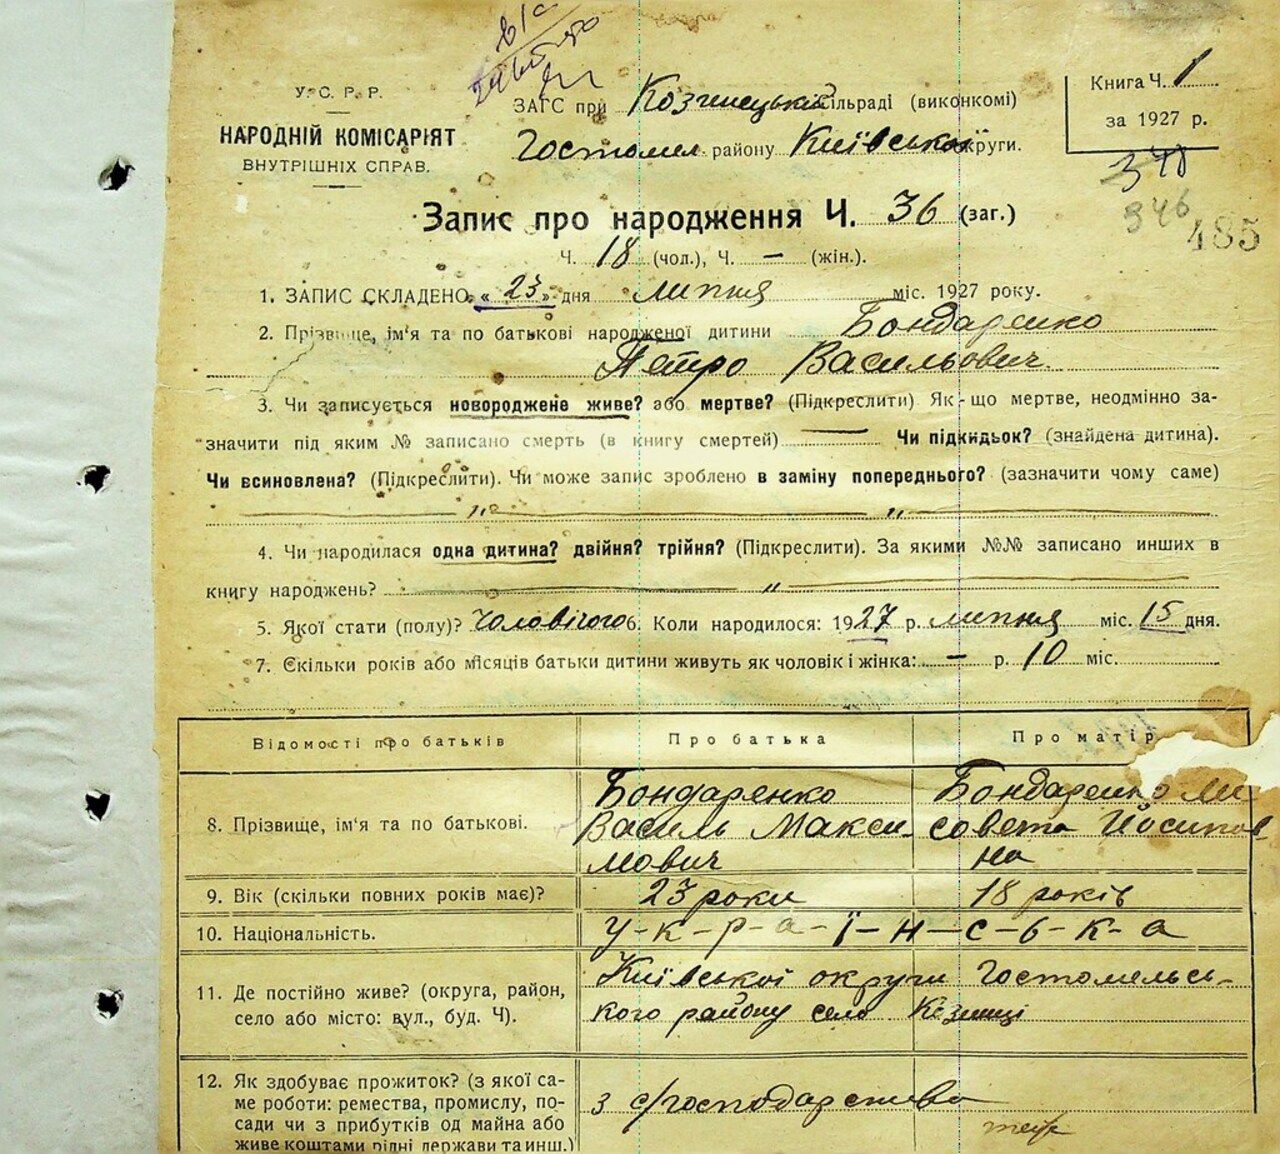 У. С. Р. Р.
НАРОДНІЙ КОМІСАРІЯТ
ВНУТРІШНІХ СПРАВ.
ЗАГС при сільраді (виконкомі)
Гостомел. району Київської округи.
Книга Ч. 1
за 1927 р.
346
485
Запис про народження Ч. 36 (заг.)
Ч. 18 (чол.), Ч. — (жін.).
1. ЗАПИС СКЛАДЕНО „ 23 „ дня липня міс. 1927 року.
2. Прізвище, ім'я та по батькові народженої дитини Бондаренко
Петро Васильович.
3. Чи записується новороджене живе? або мертве? (Підкреслити) Як-що мертве, неодмінно за-
значити під яким № записано смерть (в книгу смертей) — Чи підкидьок? (знайдена дитина).
Чи всиновлена? (Підкреслити). Чи може запис зроблено в заміну попереднього? (зазначити чому саме)
— „ — „ —
4. Чи народилася одна дитина? двійня? трійня? (Підкреслити). За якими №№ записано инших в
книгу народжень? — „ —
5. Якої стати (полу)? Чоловічого 6. Коли народилося: 1927 р. липня міс. 15 дня.
7. Скільки років або місяців батьки дитини живуть як чоловік і жінка: — р. 10 міс.
Відомості про батьків Про батька Про матір
8. Прізвище, ім'я та по батькові. Бондаренко Василь Макси-мович Бондаренко Ли-совета Йосипов-на
9. Вік (скільки повних років має)? 23 роки 18 років
10. Національність. У-к-р-а-ї-н-с-ь-к-а
11. Де постійно живе? (округа, район, Київської округи Гостомельсь-
село або місто: вул., буд. Ч). кого району село Козинці
12. Як здобуває прожиток? (з якої са-
ме роботи: ремества, промислу, по- з с/господарства
сади чи з прибутків од майна або теж
живе коштами рідні держави та инш.)